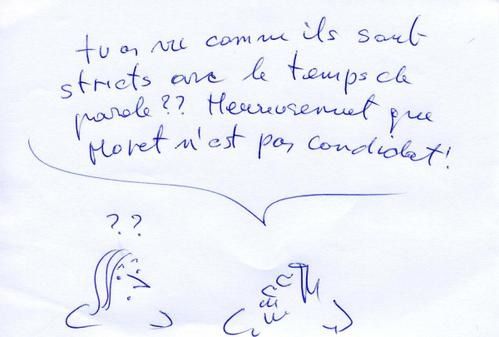 tu as vu comme ils sont
stricts avec le temps de
parole?? Heureusement que
Moret n'est pas candidat!
??